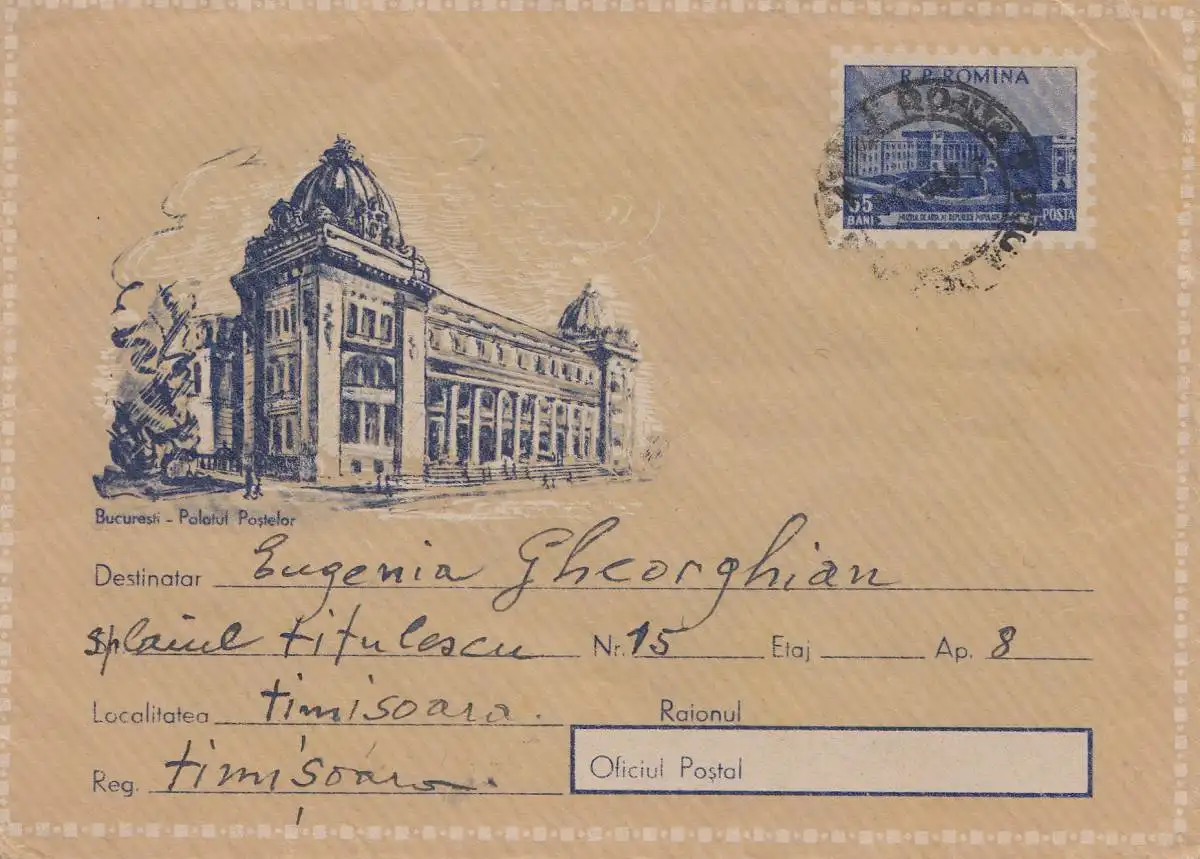 R.P. ROMÎNA
55 BANI
MUZEUL DE ARTĂ AL REPUBLICII POPULARE POSTA
Bucuresti - Palatul Poștelor
Destinatar Eugenia Gheorghian
Splaiul Titulescu Nr. 15 Etaj Ap. 8
Localitatea Timisoara. Raionul
Reg. Timisoara.
Oficiul Poștal